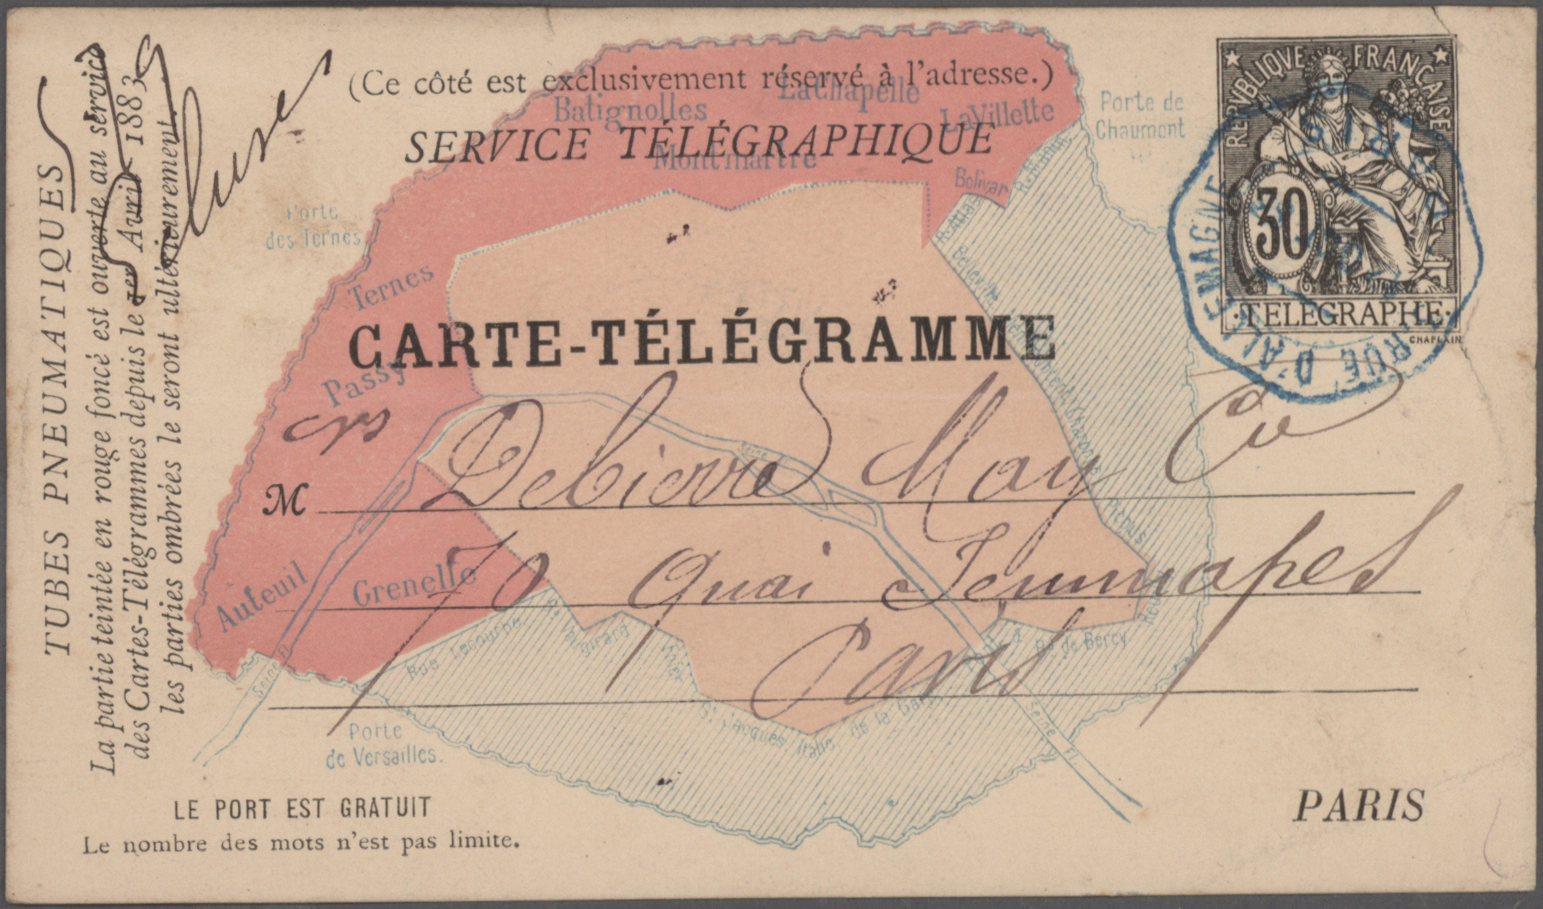 (Ce côté est exclusivement réservé à l'adresse.)
SERVICE TÉLÉGRAPHIQUE
CARTE-TÉLÉGRAMME
M Debierre May Cie
70 Quai Jemmapes
Paris
PARIS
LE PORT EST GRATUIT
Le nombre des mots n'est pas limite.
TUBES PNEUMATIQUES
La partie teintée en rouge foncé est ouverte au service
des Cartes-Télégrammes depuis le 1er Avril 1883
les parties ombrées le seront ultérieurement.
REPUBLIQUE FRANÇAISE
30
·TELEGRAPHE·
CHAPLAIN
RUE D'ALLEMAGNE
Batignolles
La Chapelle
La Villette
Montmartre
Porte de
Chaumont
Bolivar
Porte
des Ternes
Ternes
Passy
Auteuil
Grenelle
Belleville
Rue Lecourbe
de Vaugirard
St Jacques
Italie
de la Gare
de Bercy
Seine
Seine
Porte
de Versailles.